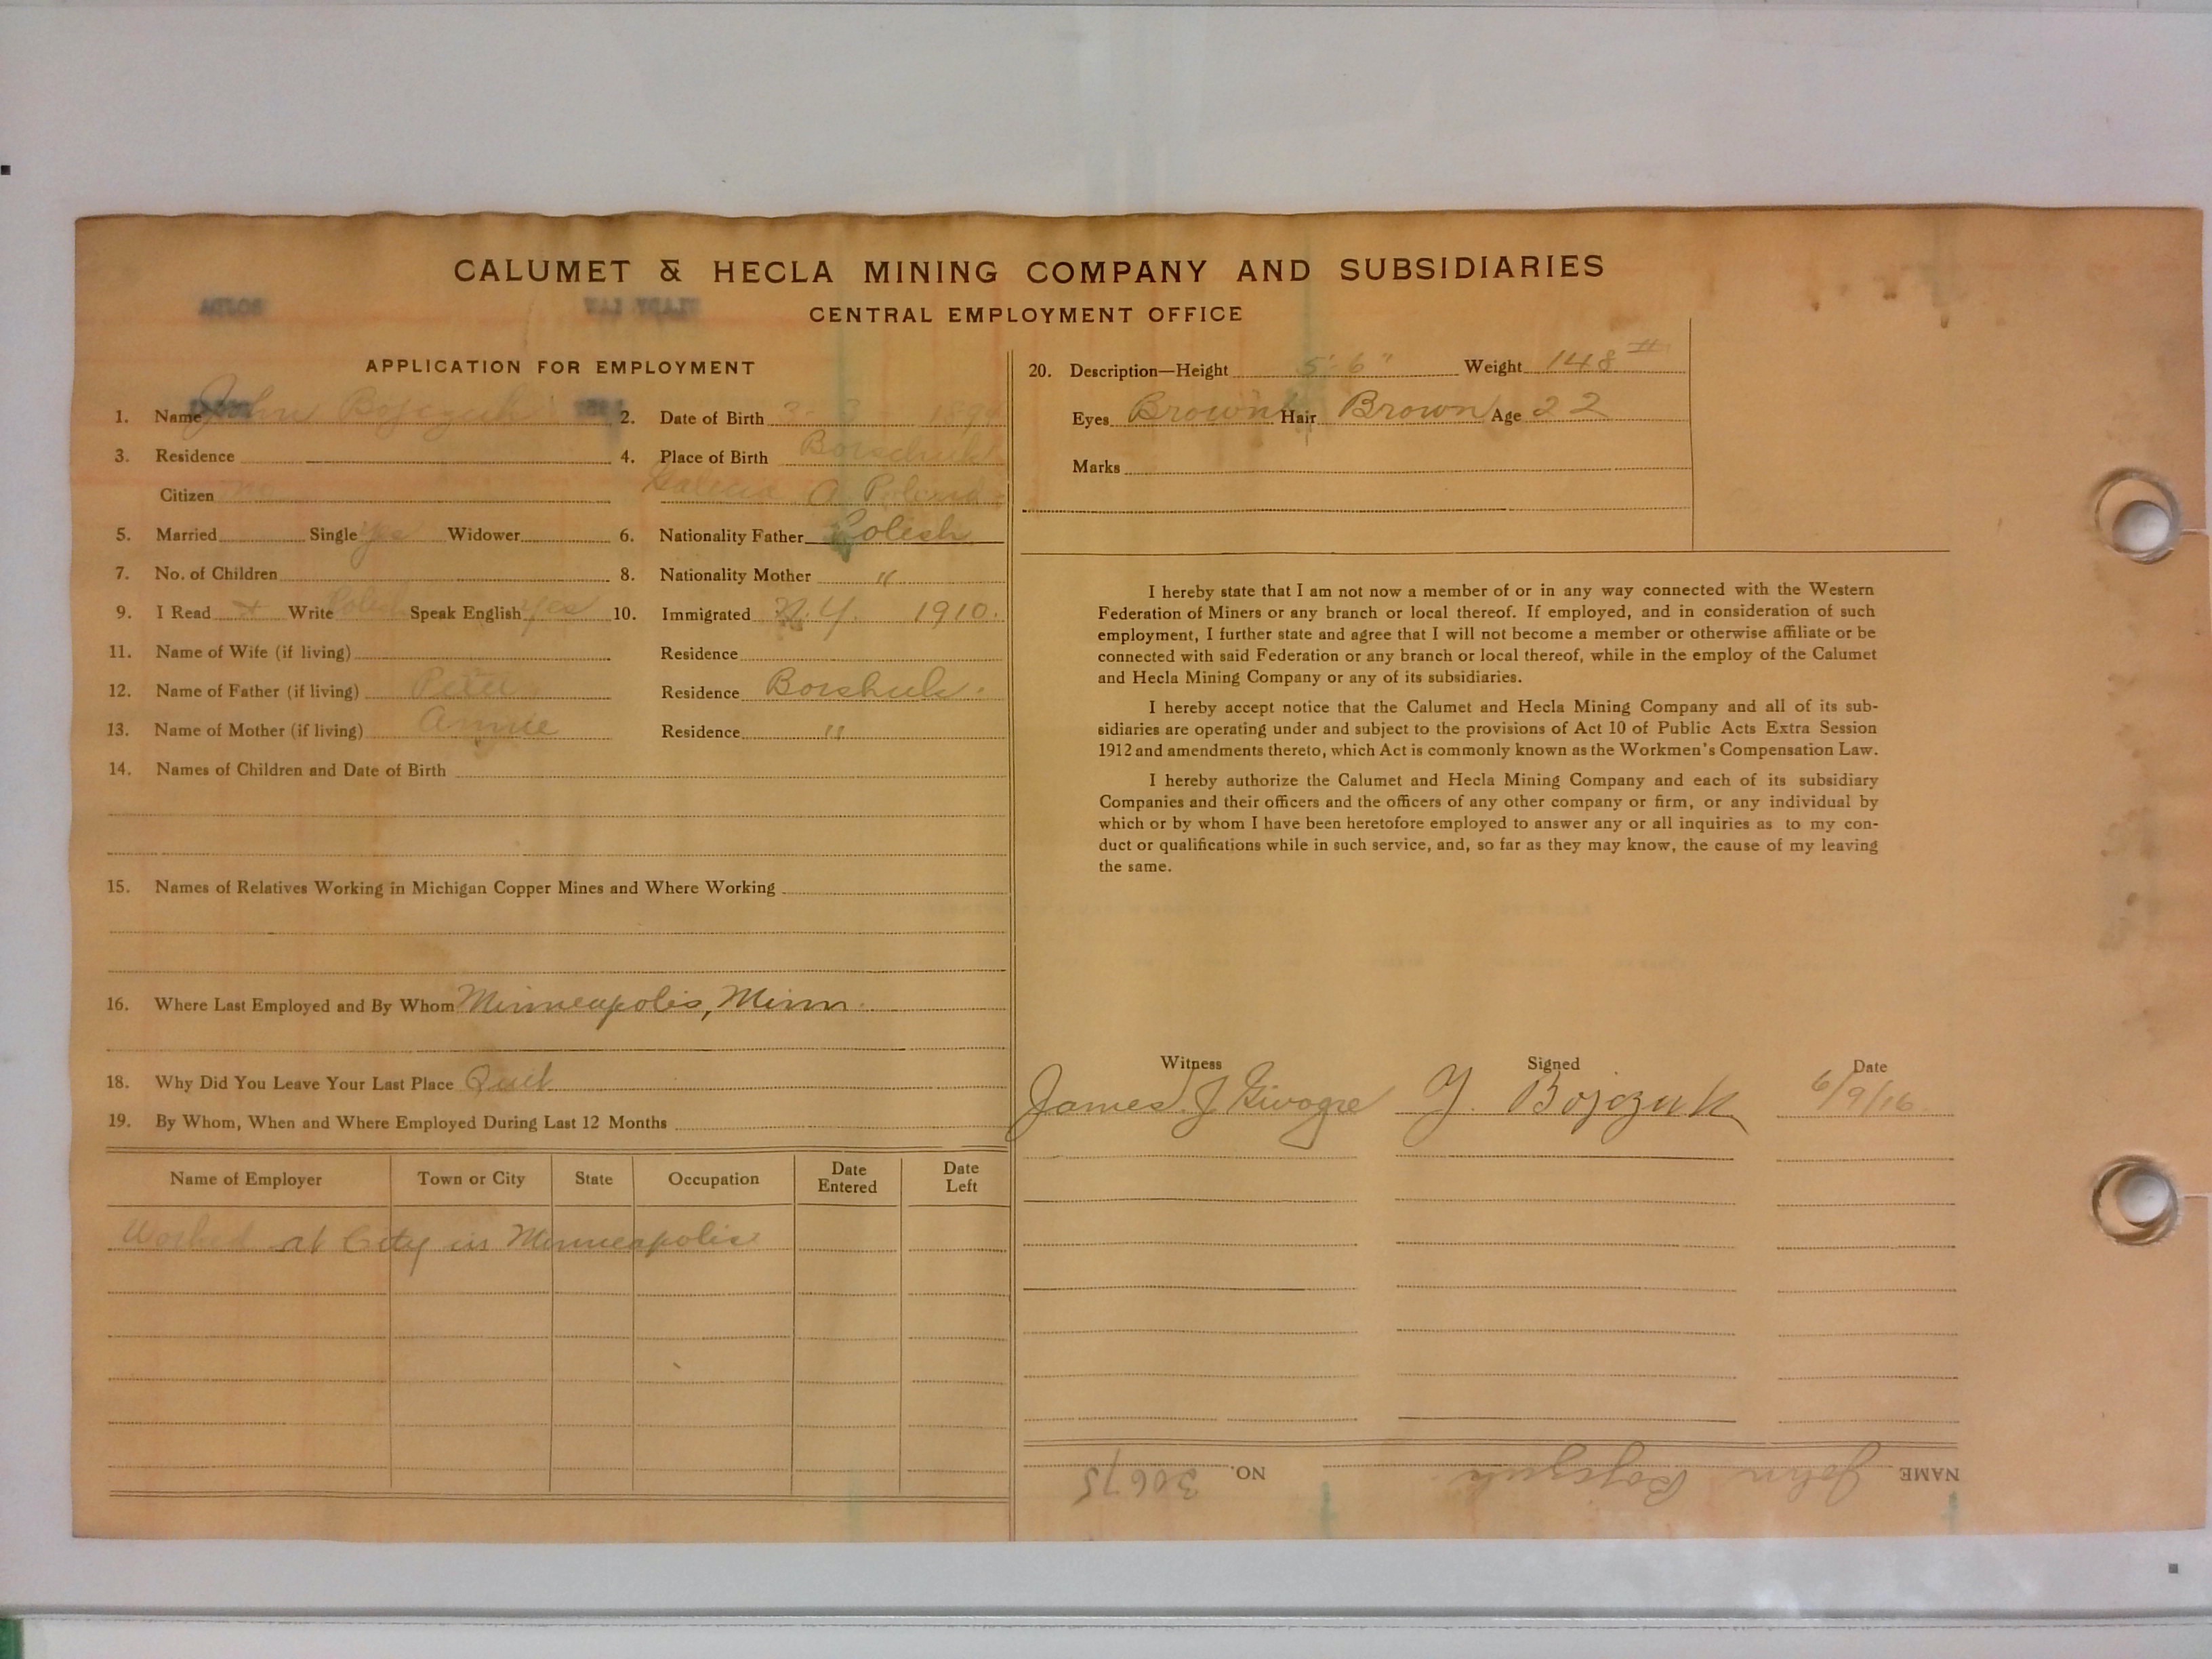 CALUMET & HECLA MINING COMPANY AND SUBSIDIARIES
CENTRAL EMPLOYMENT OFFICE
APPLICATION FOR EMPLOYMENT
1. Name John Bojczuk 2. Date of Birth 3- 3 1894
3. Residence 4. Place of Birth
Citizen no Galicia A. Poland
5. Married Single yes Widower 6. Nationality Father Polish
7. No. of Children 8. Nationality Mother "
9. I Read + Write Polish Speak English yes 10. Immigrated N.Y. 1910.
11. Name of Wife (if living) Residence
12. Name of Father (if living) Peter Residence
13. Name of Mother (if living) Annie Residence "
14. Names of Children and Date of Birth
15. Names of Relatives Working in Michigan Copper Mines and Where Working
16. Where Last Employed and By Whom Minneapolis, Minn.
18. Why Did You Leave Your Last Place Quit
19. By Whom, When and Where Employed During Last 12 Months
Name of Employer Town or City State Occupation Date Entered Date Left
Worked at City in Minneapolis
20. Description—Height 5' 6" Weight 148 #
Eyes Brown Hair Brown Age 22
Marks
I hereby state that I am not now a member of or in any way connected with the Western
Federation of Miners or any branch or local thereof. If employed, and in consideration of such
employment, I further state and agree that I will not become a member or otherwise affiliate or be
connected with said Federation or any branch or local thereof, while in the employ of the Calumet
and Hecla Mining Company or any of its subsidiaries.
I hereby accept notice that the Calumet and Hecla Mining Company and all of its sub-
sidiaries are operating under and subject to the provisions of Act 10 of Public Acts Extra Session
1912 and amendments thereto, which Act is commonly known as the Workmen's Compensation Law.
I hereby authorize the Calumet and Hecla Mining Company and each of its subsidiary
Companies and their officers and the officers of any other company or firm, or any individual by
which or by whom I have been heretofore employed to answer any or all inquiries as to my con-
duct or qualifications while in such service, and, so far as they may know, the cause of my leaving
the same.
Witness Signed Date
James J. Y. Bojczuk 6/9/16
NAME John Bojczuk NO. 30675